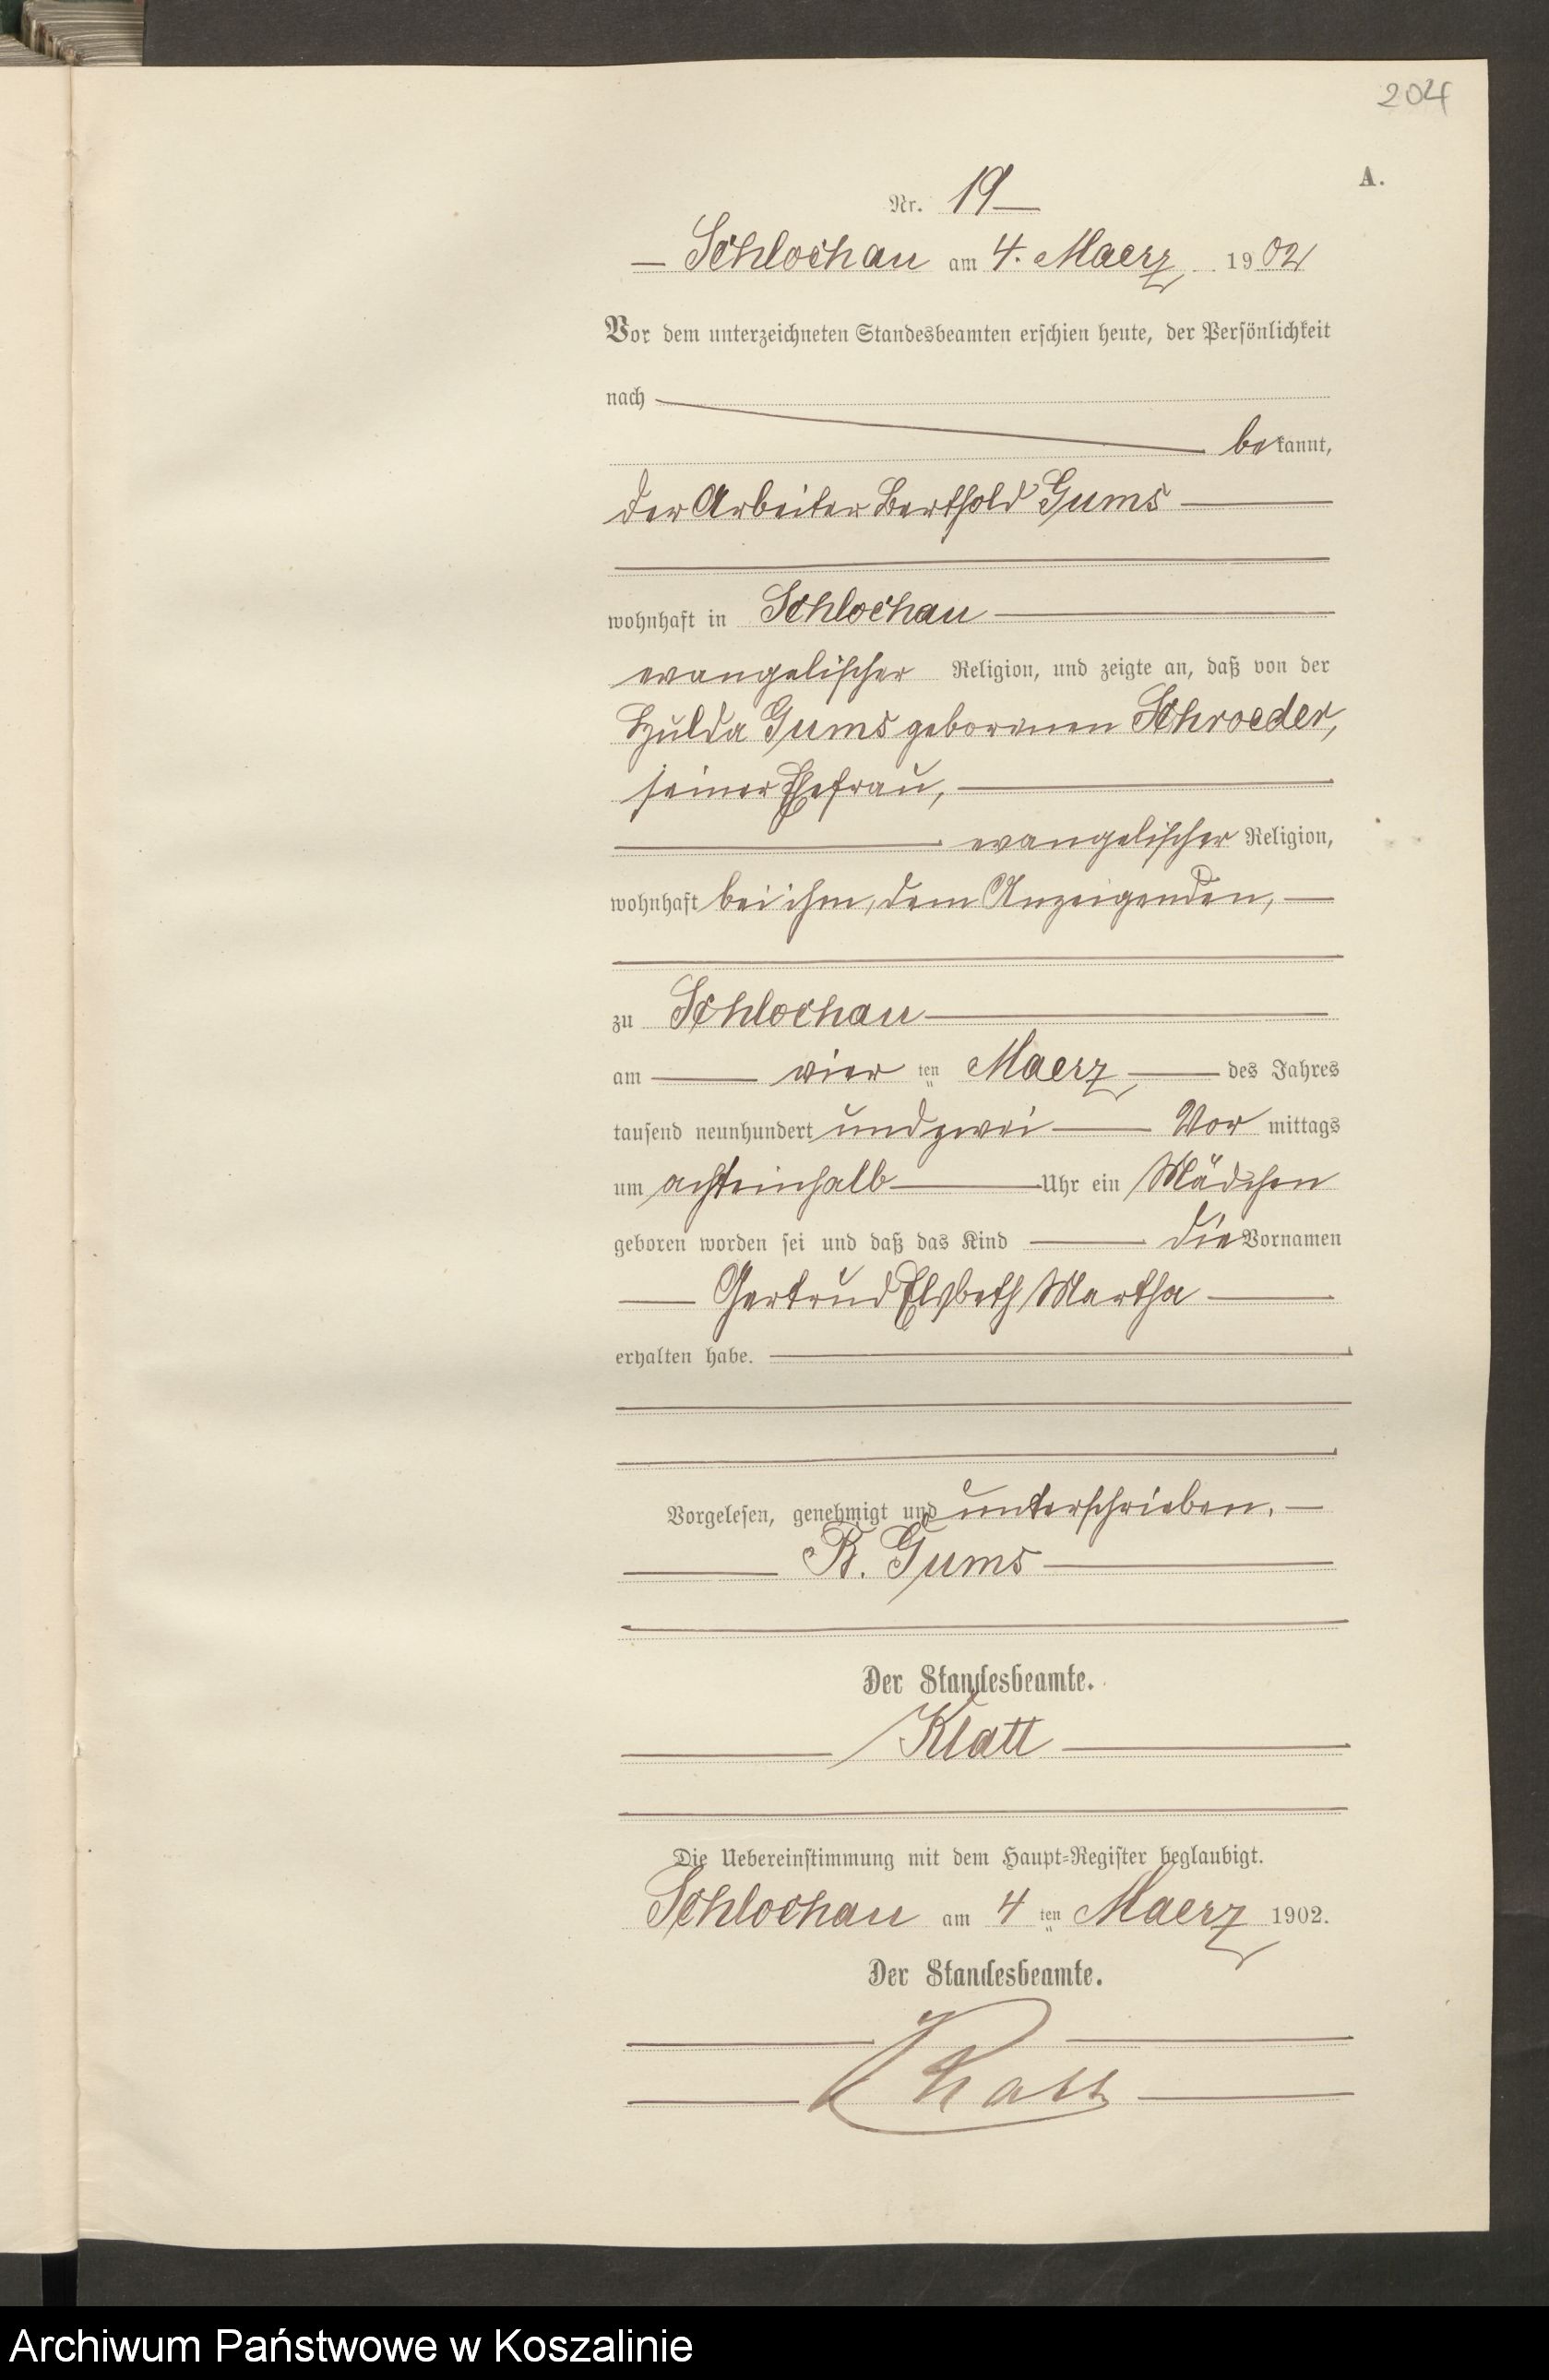 204
A.
Nr. 19
Schlochau am 4. Maerz 1902
Vor dem unterzeichneten Standesbeamten erschien heute, der Persönlichkeit
nach
bekannt,
der Arbeiter Berthold Gums
wohnhaft in Schlochau
evangelischer Religion, und zeigte an, daß von der
Hulda Gums geborenen Schroeder,
seiner Ehefrau,
evangelischer Religion,
wohnhaft bei ihm, dem Anzeigenden,
zu Schlochau
am vier ten Maerz des Jahres
tausend neunhundert und zwei Vor mittags
um achteinhalb Uhr ein Mädchen
geboren worden sei und daß das Kind die Vornamen
Gertrud Elsbeth Martha
erhalten habe.
Vorgelesen, genehmigt und unterschrieben.
B. Gums
Der Standesbeamte.
Klatt
Die Uebereinstimmung mit dem Haupt-Register beglaubigt.
Schlochau am 4 ten Maerz 1902.
Der Standesbeamte.
Klatt
Archiwum Państwowe w Koszalinie